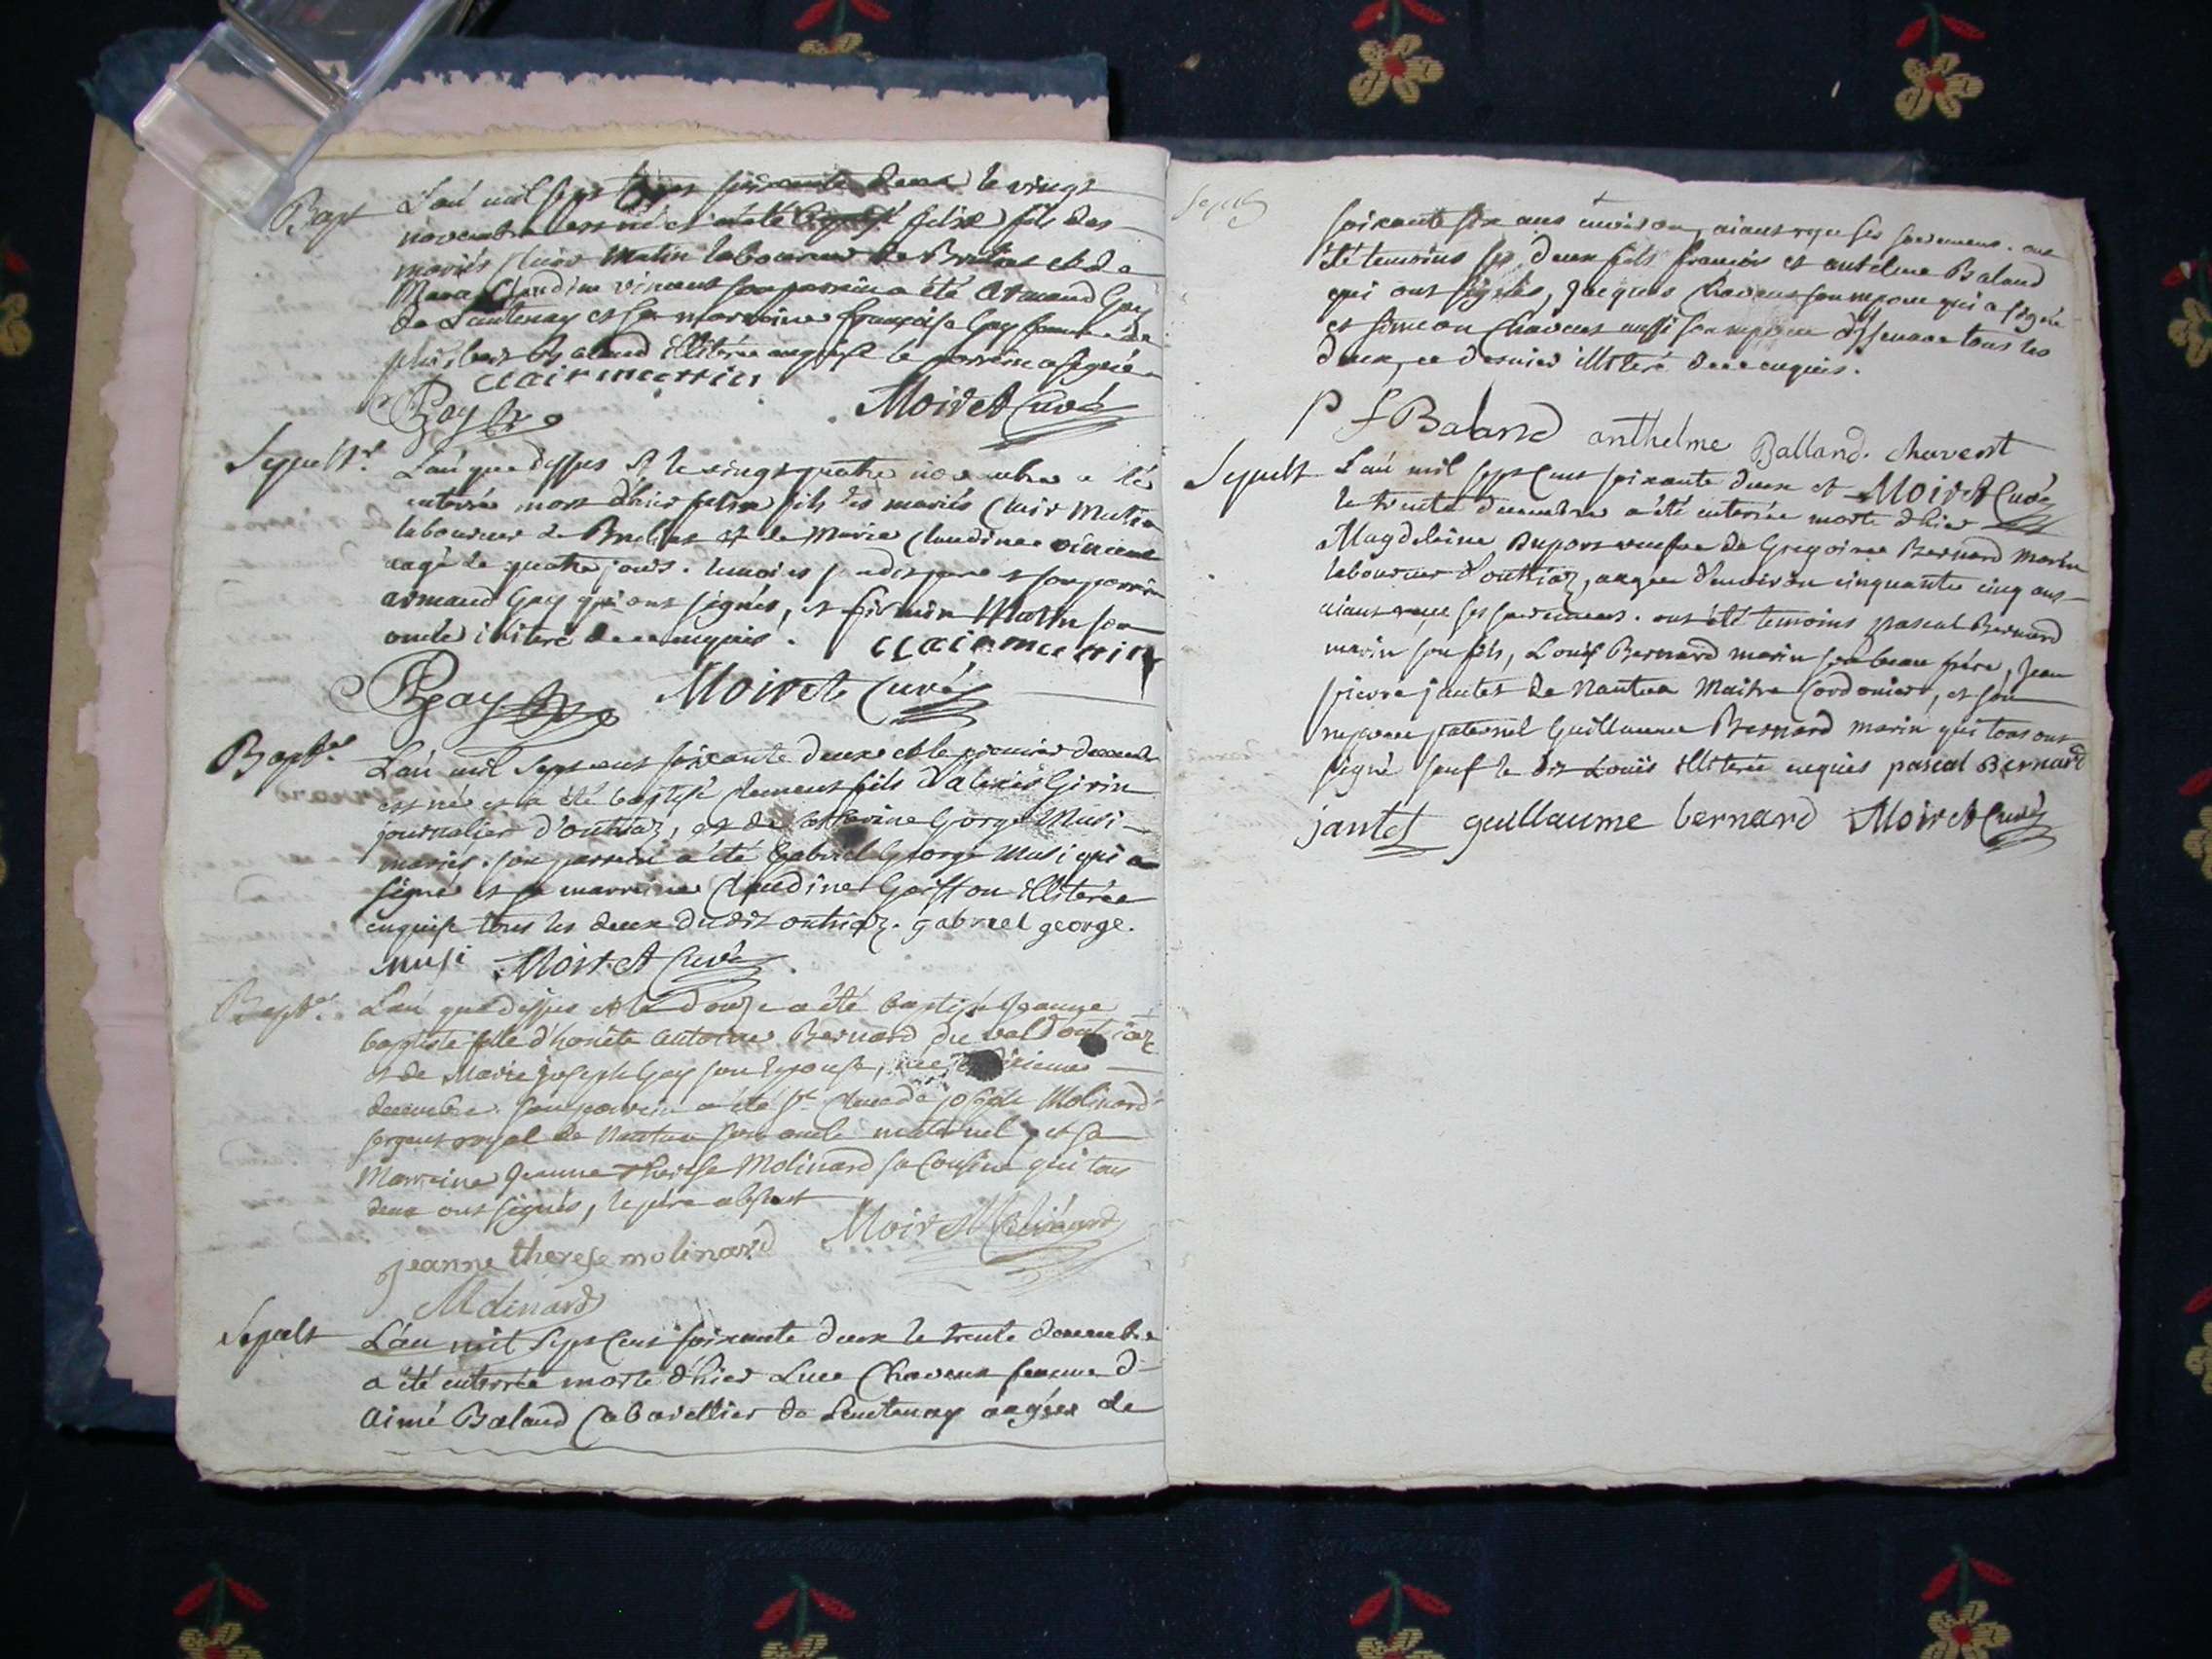 Bapt L'an mil sept cens soixante deux le vingt
novembre est né et a été baptisé felix fils des
mariés Clair Matin laboureur de et de
Marie Claudine vincent son parrain a été Armand Gay
de Lantenay et sa marraine françoise Gay femme de
Baland illiterée enquise le parrain a signé
clair mattin
Gay Moiret Curé
Sepult.re L'an que dessus et le vingt quatre novembre a été
enterré mort d'hier felix fils des mariés Clair Matin
laboureur de et de Marie Claudine vincent
aagé de quatre jours. temoins son parrain
armand Gay qui ont signés, et firmin Matin son
oncle illiteré de ce enquis. clair mattin
Gay Moiret Curé
Bapt.e L'an mil sept cens soixante deux et le premier decembre
est né et a été baptisé clement fils d'alexis Girin
journalier d'outriaz, et de George Musi
mariés. son parrain a été Gabriel George Musi qui a
signé et sa marraine Claudine Goiffon illiterée
enquise tous les deux dudit outriaz. gabriel george.
musi Moiret Curé
Bapt.e L'an que dessus et le douze a été baptisé Jeanne
baptiste fille d'honête antoine Bernard du val d'outriaz
et de Marie Joseph Gay son Epouse, née
decembre. son parrain a été S.r Claude joseph Molinard
sergent royal de Nantua son oncle maternel et sa
Marraine Jeanne therese Molinard sa Cousine qui tous
deux ont signés, le père absent
Moiret Curé
jeanne therese molinard
Molinard
Sepult L'an mil sept Cens soixante deux le trente decembre
a été enterrée morte d'hier Luce Chavent femme d'
aimé Baland Cabarettier de Lantenay aagée de
soixante six ans environ, aiant reçu ses sacremens. ont
été temoins ses deux fils françois et antelme Baland
qui ont signés, Jacques Chavent son qui a signé
et simeon Chavent aussi son tous les
deux, ce dernier illiteré de ce enquis.
p f Baland anthelme Balland. chavent
Moiret Curé
Sepult L'an mil sept Cens soixante deux et
le trente decembre a été enterrée morte d'hier
Magdeleine Dupont veufve de Gregoire Bernard Marin
laboureur d'outriaz, aagée d'environ cinquante cinq ans
aiant reçu ses sacremens. ont été temoins pascal Bernard
marin son fils, Louis Bernard marin son beau frére, Jean
pierre jantet de Nantua Maitre Cordonier, et son
neveu paternel Guillaume Bernard marin qui tous ont
signé sauf le dit Louis illiterée enquis pascal Bernard
jantet guillaume bernard Moiret Curé